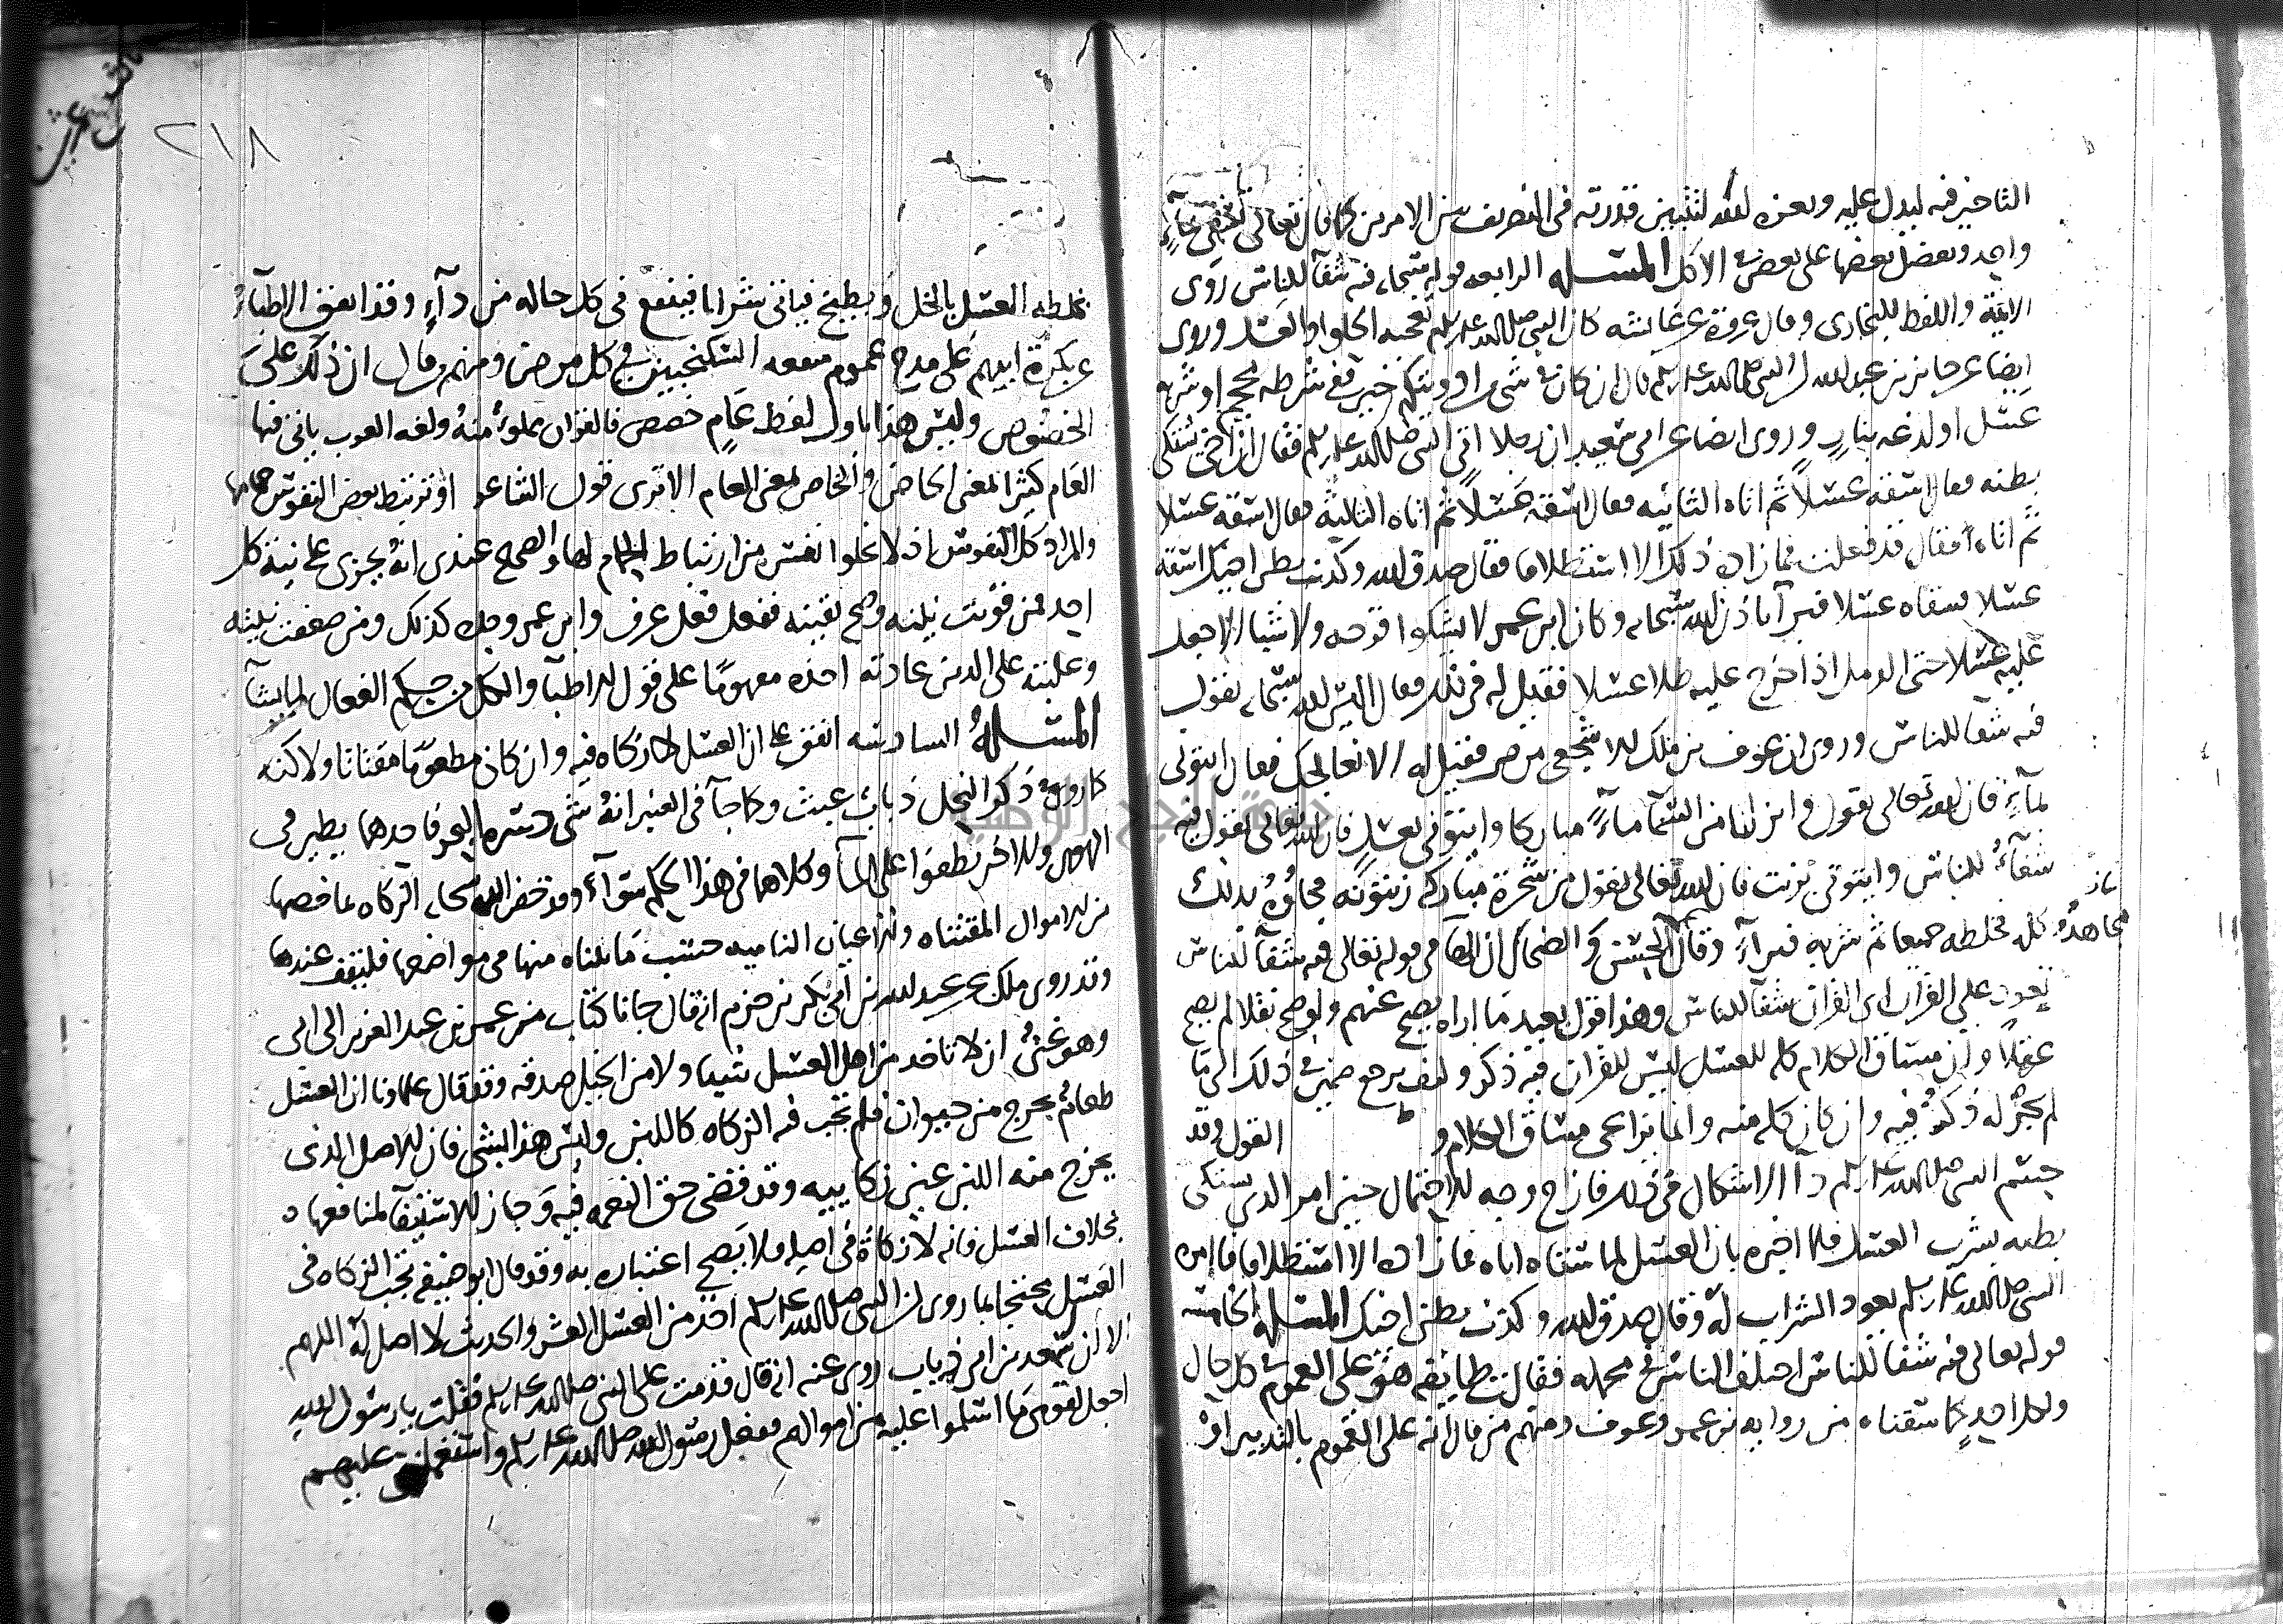 التاخير فيه ليدل عليه وبعزه الله لتتبين قدرته في التصريف بين الامرين كما قال تعالى تسقى بمآء
واحد ونفضل بعضها على بعض في الاكل المسله الرابعه قوله سبحانه فيه شفآ للناس روى
الايمة واللفظ للبخارى وقال عروة عن عائشه كان النبي صلى الله عليه وسلم يعجبه الحلوا والعسل وروى
ايضا عن جابر بن عبد الله ان النبي صلى الله عليه وسلم قال ان كان في شى من ادويتكم خير ففي شرطه محجم او شربه
عسل او لذعه بنارٍ وروى ايضا عن ابي سعيد ان رجلا اتى النبي صلى الله عليه وسلم فقال ان اخي يشتكى
بطنه فقال اسقه عسلاً ثم اتاه الثانيه فقال اسقه عسلاً ثم اتاه الثالثه فقال اسقه عسلا
ثم اتاه فقال قد فعلت فما زاده ذلك الا استطلاقا فقال صدق الله وكذب بطن اخيك اسقه
عسلا فسقاه عسلا فبرآ باذن الله سبحانه وكان ابن عمر لا يشكوا قرحه ولا شيا الا جعل
عليه عسلا حتى الدمل اذا خرج عليه طلا عسلا فقيل له في ذلك فقال اليس الله سبحانه يقول
فيه شفا للناس وروى ان عوف بن ملك الاشجعى مرض فقيل له الا نعالجك فقال ايتونى
بمآءٍ فان الله تعالى يقول وانزلنا من السما مآءً مباركا وايتوني بعسلٍ فان الله تعالى يقول فيه
شفآءٌ للناس وايتونى بزيت فان الله تعالى يقول من شجرة مباركه زيتونه فجاؤه بذلك
كله فخلطه جميعا ثم شربه فبرآءَ وقال مجاهد والحسن والضحاك ان الهآ في قوله تعالى فيه شفآ للناس
تعود على القران اى القران شفآ للناس وهذا قول بعيد ما اراه يصح عنهم ولو صح نقلا لم يصح
عقلاً وان مساق الكلام كله للعسل ليس للقران فيه ذكر وكيف يرجع ضمير في ذلك الى ما
لم يجر له ذكرٌ فيه وان كان كله منه وانما يراعى مساق الكلام و القول وقد
حسم النبي صلى الله عليه وسلم دآ الاشكال في ذلك فازاح وجه الاحتمال حين امر الذى يشتكى
بطنه بشرب العسل فلما اخبره بان العسل لما سقاه اياه فما زاده الا استطلاقا فامره
النبي صلى الله عليه وسلم بعود الشراب له وقال صدق الله وكذب بطن اخيك المسله الخامسه
قوله تعالى فيه شفا للناس اختلف الناس في محمله فقالت طايفه هو على العموم في كل حال
ولكل احدٍ كما سقناه من روايه بن عمر وعوف ومنهم من قال انه على العموم بالتدبير او
٢١٨
يخلطه العسل بالخل ويطبخ فياتى شرابا فينفع فى كل حاله من دآءٍ وقد اتفق الاطباء
عن بكرة ابيهم على مدح عموم منفعه السكنجبين في كل مرض ومنهم من قال ان ذلك على
الخصوص وليس هذا باول لفظ عامٍ خصص فالقران مملوءٌ منهُ ولغه العرب ياتى فيها
العام كثيرا بمعنى الخاص والخاص بمعنى العام الا ترى قول الشاعر او ترتبط بعض النفوس حمامها
والمراد كل النفوس اذ لا تخلوا نفس من ارتباط الحمام لها والصحيح عندى انه يجرى على نية كل
احد فمن قويت نيته وصح يقينه ففعل فعل عوف وابن عمر وجده كذلك ومن ضعفت نيته
وغلبته على الدين عادته اخذه مفهومًا على قول الاطبا والكل من حكم الفعال لما يشآ
المسله السادسه اتفق على ان العسل لا زكاه فيه وان كان مطعومًا مقتاتا ولاكنه
كما روى في ذكر النحل ذباب غيث وكما جآ في العنبر انه شى دسره البحر فاحدهما يطير في
الهوى والاخر يطفوا على المآ وكلاهما في هذا الحكم سوآء وقد خص الله سبحانه الزكاه بما خصها
من الاموال المقتناه والاعيان الناميه حسب ما بيناه منها في مواضعها فليقف عندها
وقد روى ملك عن عبد الله بن ابي بكر بن حزم انه قال جانا كتاب من عمر بن عبد العزيز الى ابى
وهو بمنى ان لا ناخد من اهل العسل شيا ولا من الخيل صدقه وقد قال علماونا ان العسل
طعامٌ يخرج من حيوان فلم تجب فيه الزكاه كاللبن وليس هذا بشى فان الاصل الذى
يخرج منه اللبن عين زكاييه وقد قضى حق النعمه فيه وجاز الاستيفآ لمنافعها د
بخلاف العسل فانه لا زكاة في اصله فلا يصح اعتباره به وقد قال ابو حنيفه تجب الزكاه فى
العسل محتجا بما روى ان النبي صلى الله عليه وسلم اخذ من العسل العشر والحديث لا اصل له اللهم
الا ان سعد بن ابى ذباب روى عنه انه قال قدمت على النبى صلى الله عليه وسلم فقلت يا رسول الله
اجعل لقومى ما اسلموا عليه من اموالهم ففعل رسول الله صلى الله عليه وسلم واستعملنى عليهم